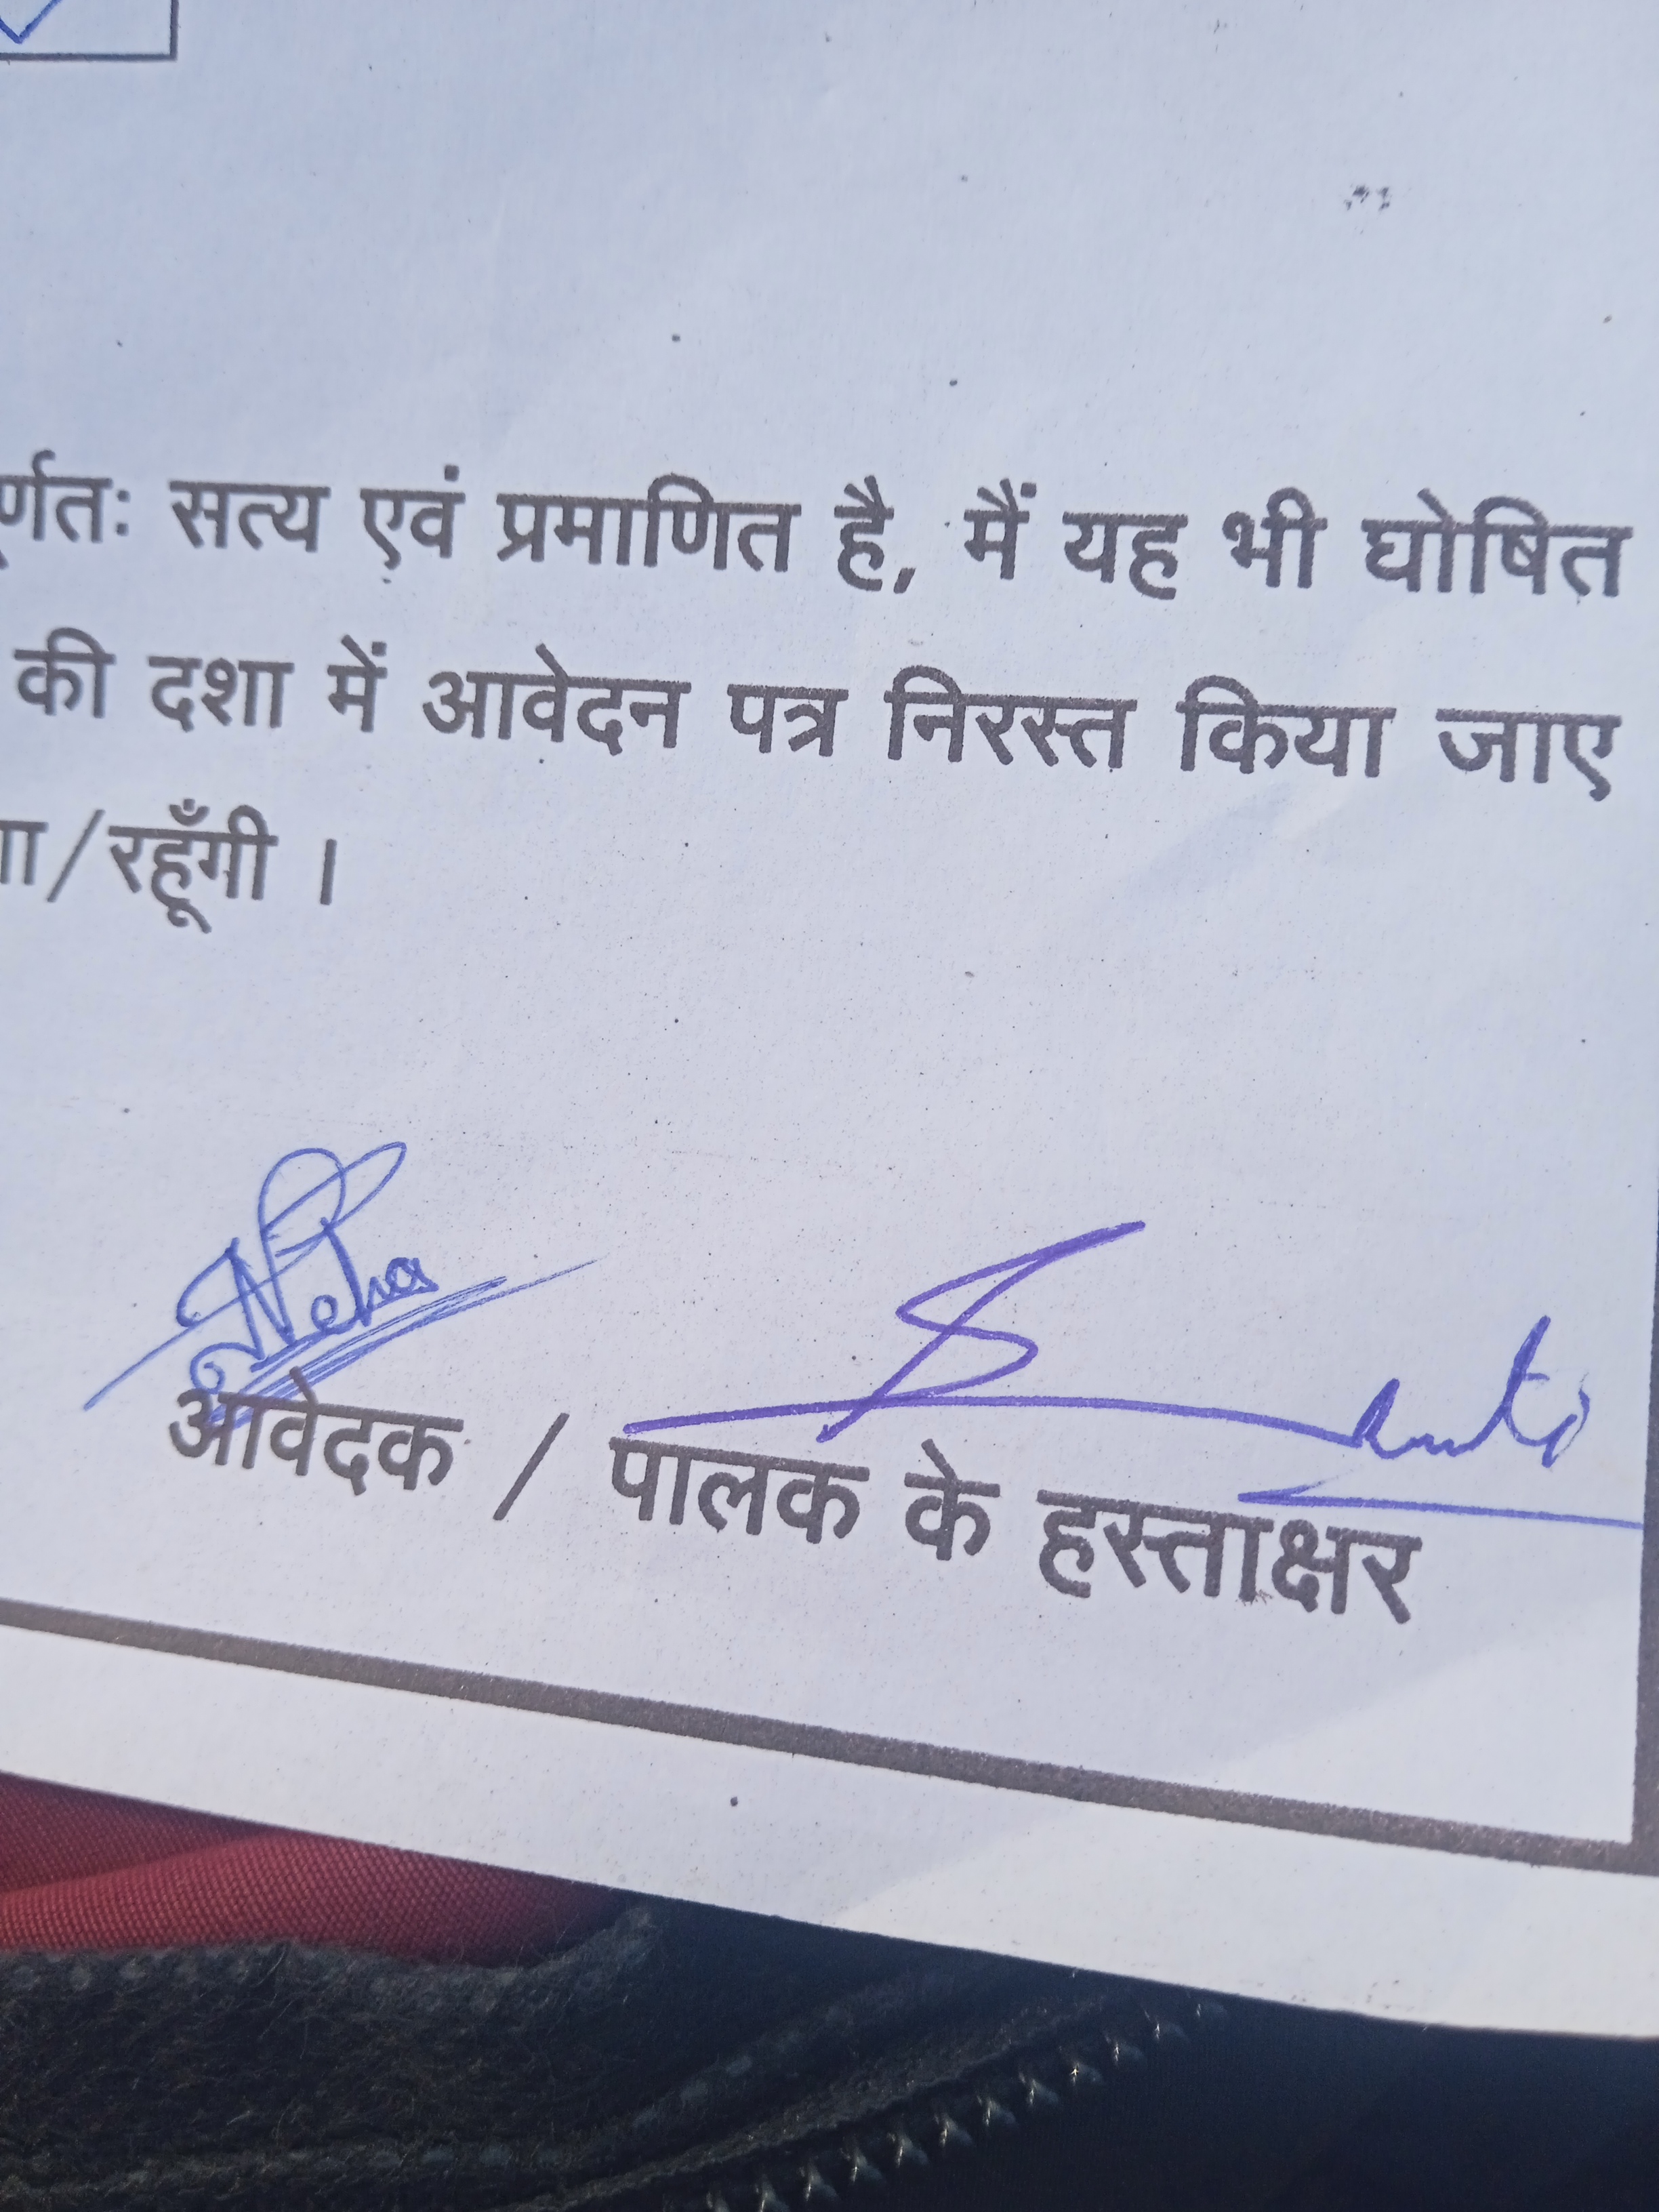 र्णतः सत्य एवं प्रमाणित है, मैं यह भी घोषित
की दशा में आवेदन पत्र निरस्त किया जाए
गा/रहूँगी ।
Neha
आवेदक / पालक के हस्ताक्षर